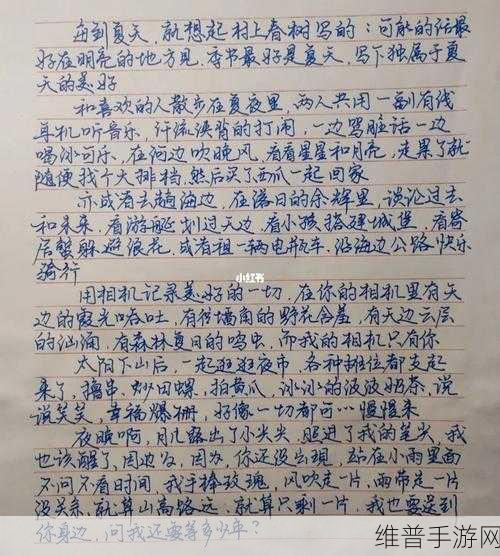 每到夏天,就想起村上春树写的:可能的话最
好在明亮的地方见,季节最好是夏天,写下独属于夏
天的美好
和喜欢的人散步在夏夜里,两人共用一副有线
耳机听音乐,汗流浃背的打闹,一边骂脏话一边
喝冰可乐,在河边吹晚风,看看星星和月亮,走累了就
随便找个大排档,然后买了西瓜一起回家
亦或者去趟海边,在落日的余辉里,谈论过去
和未来,看游艇划过天边,看小孩搭建城堡,看寄
居蟹躲避浪花,或者租一辆电瓶车,沿海边公路快乐
骑行
小红书
用相机记录美好的一切,在你的相机里有天
边的霞光吞吐,有径墙角的野花含羞,有天边云层
的汹涌,有森林夏日的鸣虫,而我的相机只有你
太阳下山后,一起逛逛夜市,各种摊位都支起
来了,撸串,炒田螺,拍黄瓜,冰冰的波波奶茶,说
说笑笑,幸福爆棚,好像一切都可…慢慢来
夜晚啊,月儿露出了小尖尖,照进了我的笔尖,我
也该醒了,因为,因为,你还没出現,站在小雨里面
不问不看时间,我手捧玫瑰,风吹走一片,雨带走一片
没关系,就算山高路远,就算只剩一片,我也要送到
你身边,问我还要等多少年?
维普手游网